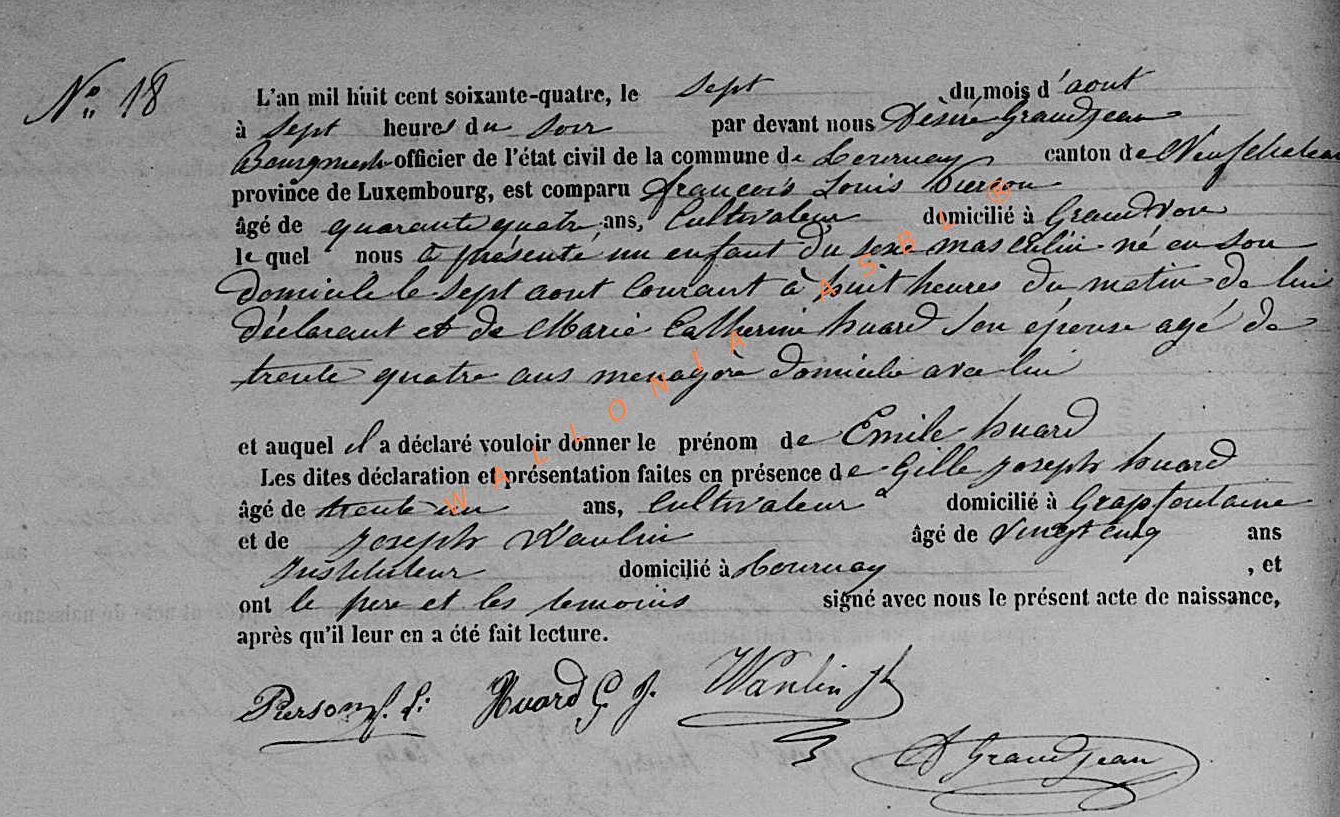 N° 18
L'an mil huit cent soixante-quatre, le sept du mois d'aout
à sept heures du soir par devant nous Désiré Grandjean
Bourgmestre officier de l'état civil de la commune de Tournay canton de Neufchateau
province de Luxembourg, est comparu françois Louis Pierson
âgé de quarante quatre ans, Cultivateur domicilié à Grandvoir
le quel nous a présenté un enfant du sexe masculin né en son
domicile le sept aout courant à huit heures du matin de lui
déclarant et de Marie Catherine huard son épouse agé de
trente quatre ans menagère domicilié avec lui
et auquel il a déclaré vouloir donner le prénom de Emile huard
Les dites déclaration et présentation faites en présence de Gille joseph huard
âgé de trente un ans, Cultivateur domicilié à Grapfontaine
et de Joseph Wanlin âgé de Vingt cinq ans
Instituteur domicilié à Tournay , et
ont le pere et les temoins signé avec nous le présent acte de naissance,
après qu'il leur en a été fait lecture.
Pierson f. L. Huard G J. Wanlin Jh
D Grandjean
WALLONIA ASBL ®